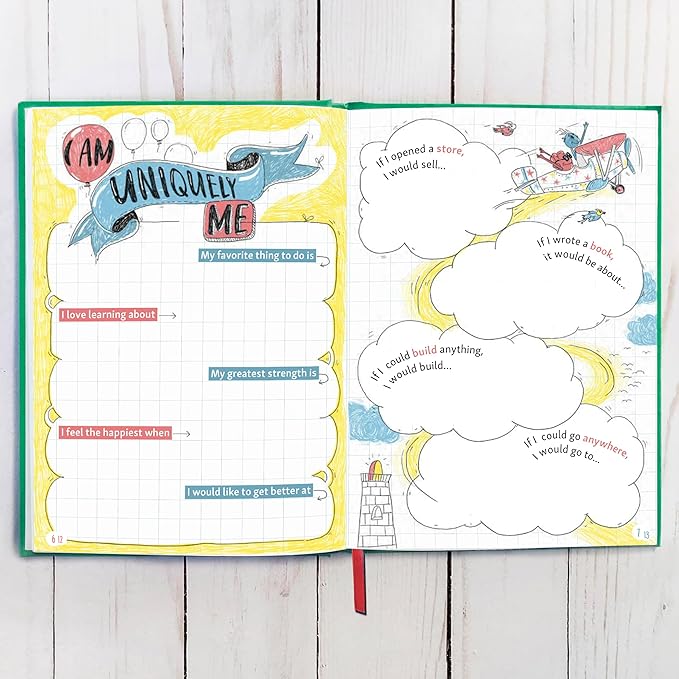 I AM
UNIQUELY
ME
My favorite thing to do is
I love learning about
My greatest strength is
I feel the happiest when
I would like to get better at
6 12
If I opened a store,
I would sell...
If I wrote a book,
it would be about...
If I could build anything,
I would build...
If I could go anywhere,
I would go to...
7 13